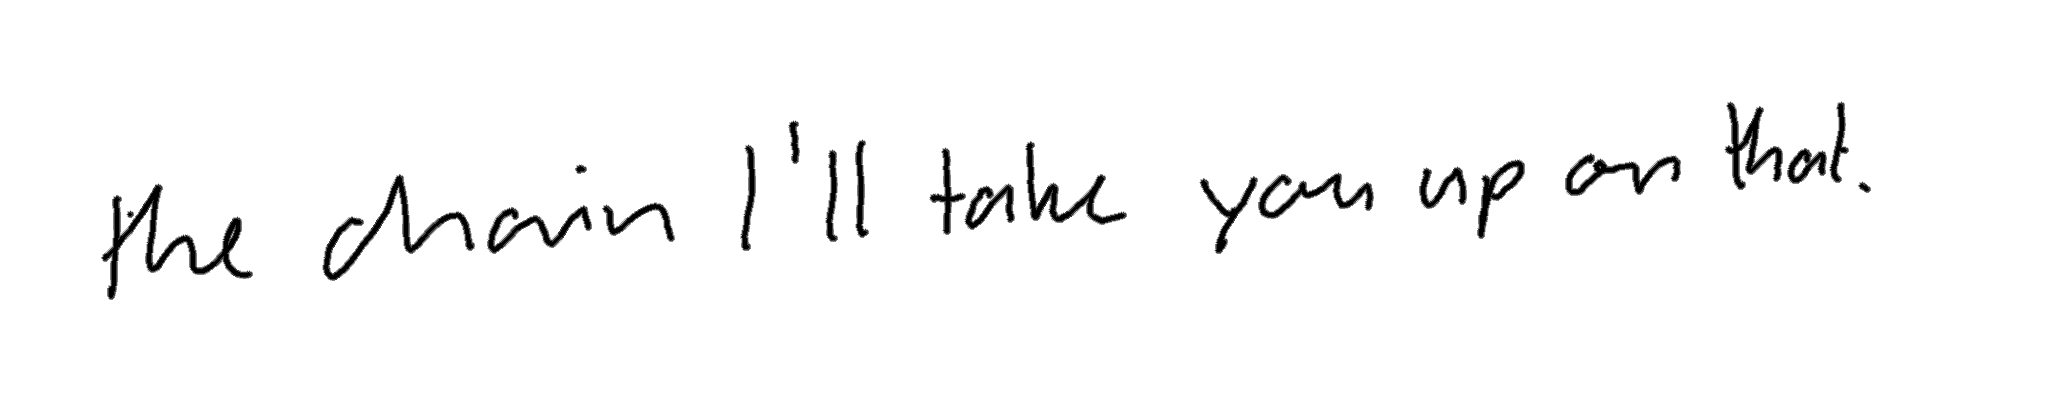 the chain I'll take you up on that.